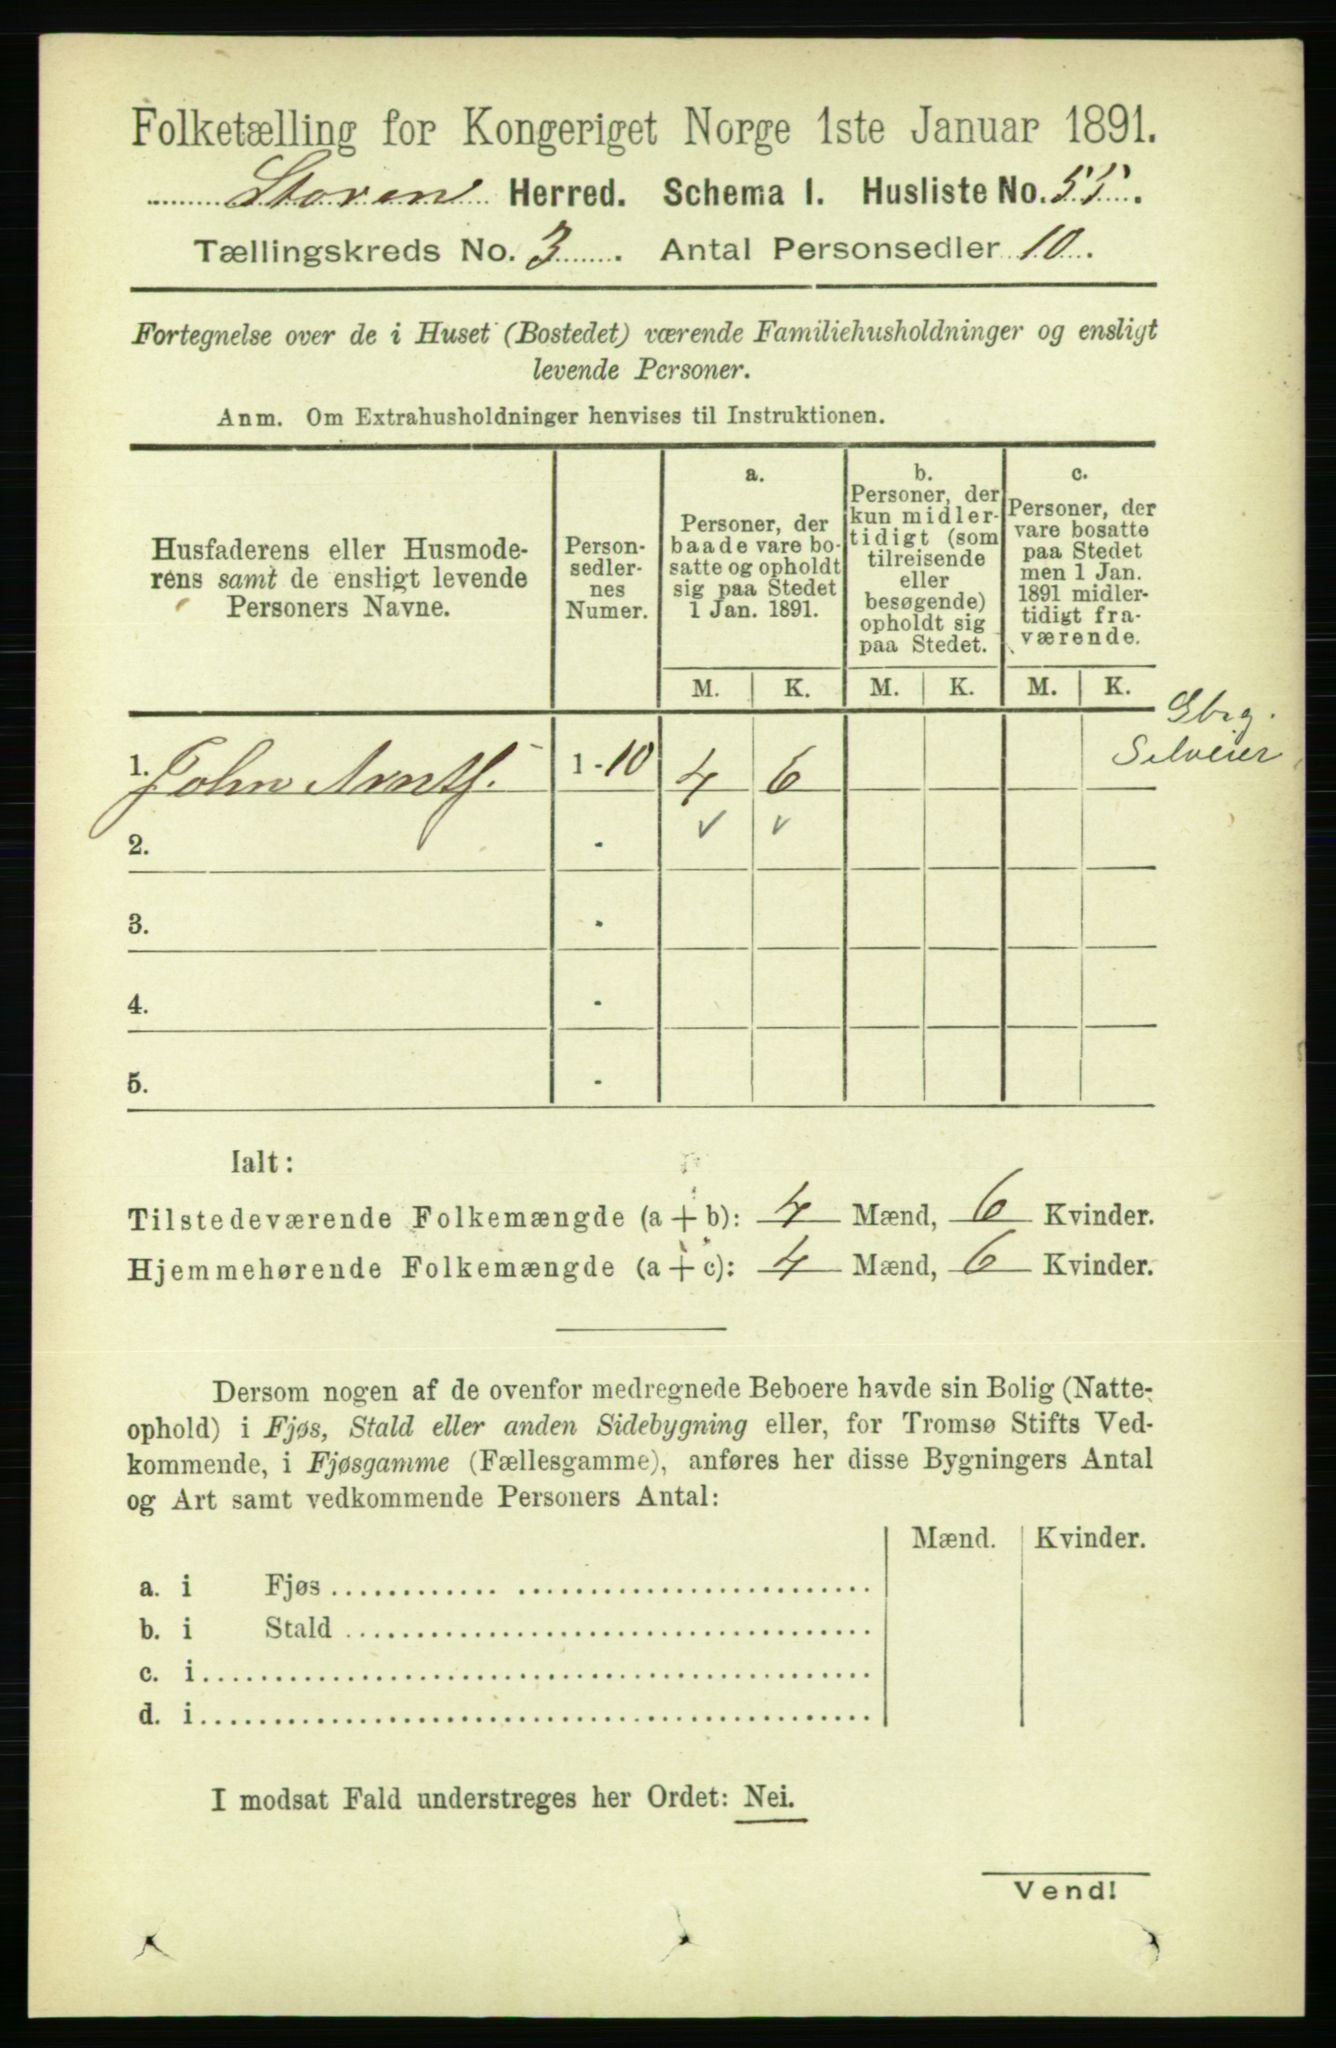 Folketælling for Kongeriget Norge 1ste Januar 1891.
Støren Herred. Schema 1. Husliste No. 55.
Tællingskreds No. 3. Antal Personsedler 10.
Fortegnelse over de i Huset (Bostedet) værende Familiehusholdninger og ensligt
levende Personer.
Anm. Om Extrahusholdninger henvises til Instruktionen.
Husfaderens eller Husmode-
rens samt de ensligt levende
Personers Navne.
Person-
sedler-
nes
Numer.
a.
Personer, der
baade vare bo-
satte og opholdt
sig paa Stedet
1 Jan. 1891.
b.
Personer, der
kun midler-
tidigt (som
tilreisende
eller
besøgende)
opholdt sig
paa Stedet.
c.
Personer, der
vare bosatte
paa Stedet
men 1 Jan.
1891 midler-
tidigt fra-
værende.
M. K. M. K. M. K.
Gbrg.
Selveier
1. John Arntf. 1-10 4 6
2. - ✓ ✓
3. -
4. -
5. -
Ialt:
Tilstedeværende Folkemængde (a + b): 4 Mænd, 6 Kvinder.
Hjemmehørende Folkemængde (a + c): 4 Mænd, 6 Kvinder.
Dersom nogen af de ovenfor medregnede Beboere havde sin Bolig (Natte-
ophold) i Fjøs, Stald eller anden Sidebygning eller, for Tromsø Stifts Ved-
kommende, i Fjøsgamme (Fællesgamme), anføres her disse Bygningers Antal
og Art samt vedkommende Personers Antal:
Mænd. Kvinder.
a. i Fjøs
b. i Stald
c. i
d. i
I modsat Fald understreges her Ordet: Nei.
Vend!